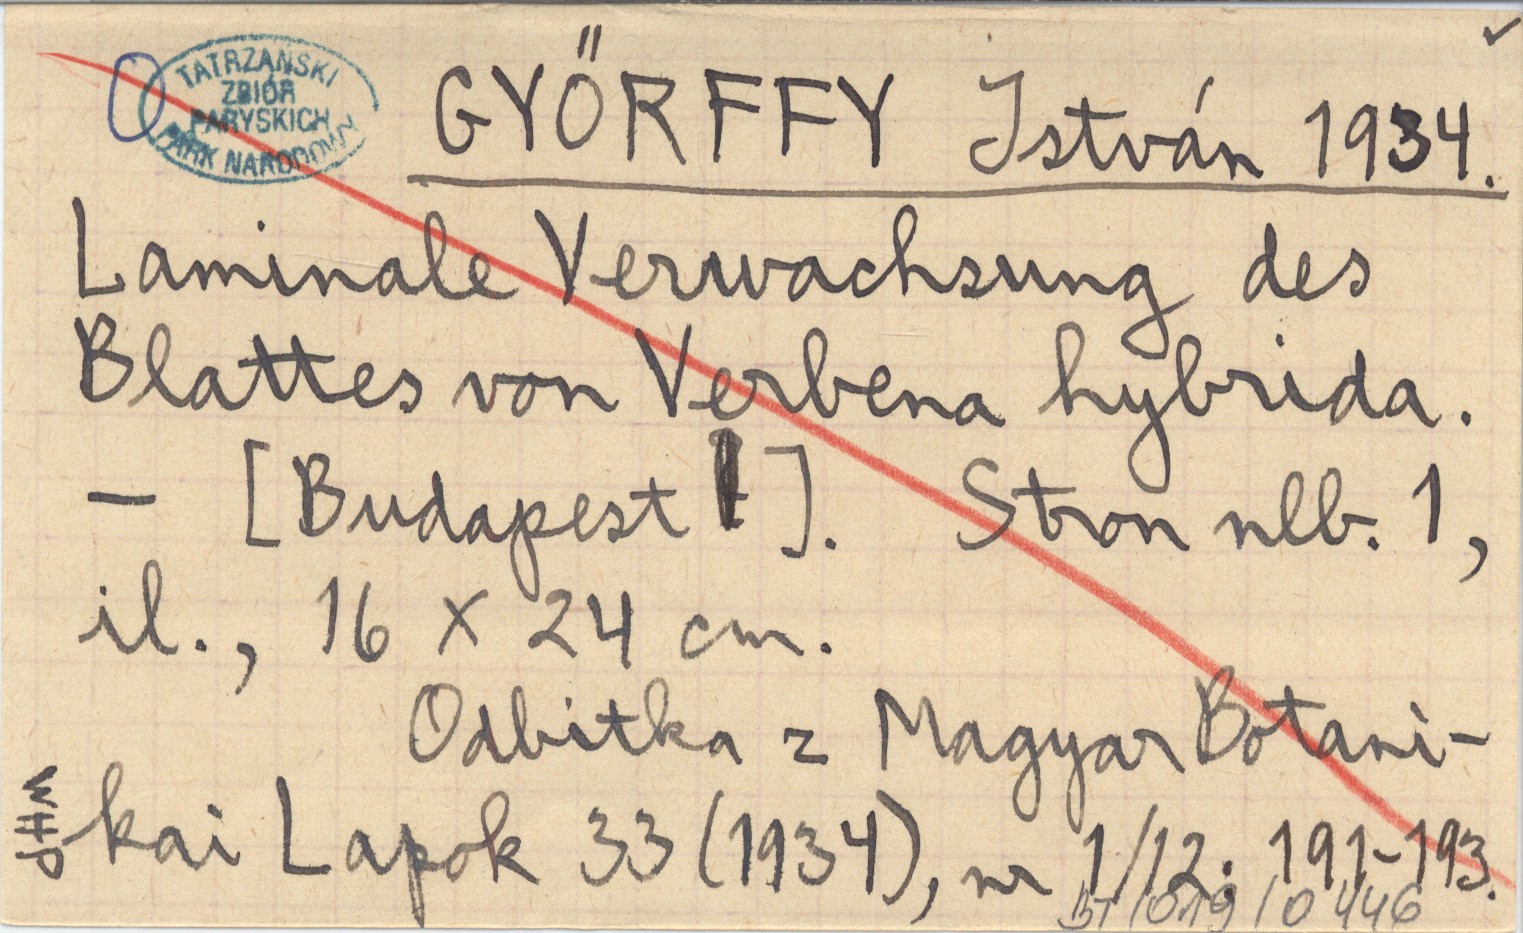 TATRZAŃSKI
ZBIÓR
PARYSKICH
PARK NARODOWY
GYŐRFFY István 1934.
Laminale Verwachsung des
Blattes von Verbena hybrida.
— [Budapest ]. Stron nlb. 1,
il., 16 x 24 cm.
Odbitka z Magyar Botani-
kai Lapok 33 (1934), nr 1/12: 191-193.
WHP